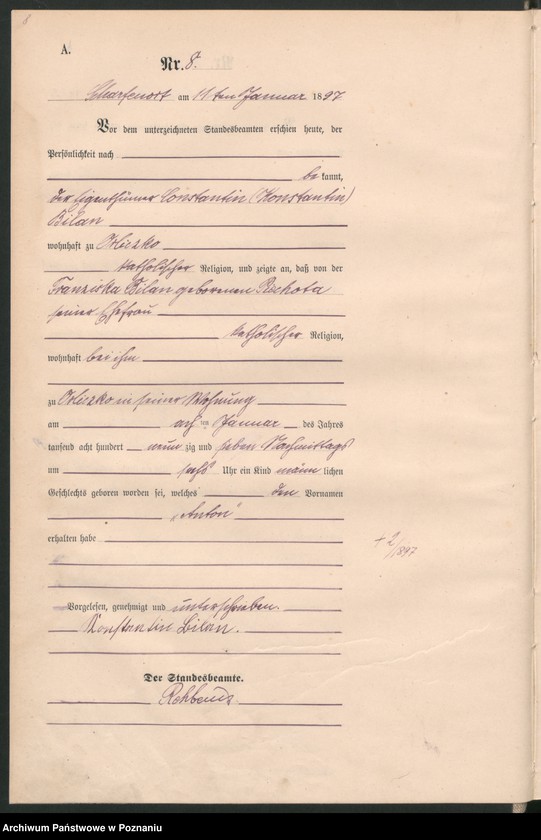 8
A.
Nr. 8.
Scharfenort am 11ten Januar 1897
Vor dem unterzeichneten Standesbeamten erschien heute, der
Persönlichkeit nach
bekannt,
der Eigenthümer Constantin (Konstantin)
Bilan
wohnhaft zu
katholischer Religion, und zeigte an, daß von der
Franziska Bilan geborenen Rochota
seiner Ehefrau
katholischer Religion,
wohnhaft bei ihm
zu in seiner Wohnung
am ten Januar des Jahres
tausend acht hundert neun zig und sieben Nachmittags
um sechs Uhr ein Kind männ lichen
Geschlechts geboren worden sei, welches den Vornamen
„Anton"
erhalten habe
+ 2/1897
Vorgelesen, genehmigt und unterschrieben.
Konstantin Bilan.
Der Standesbeamte.
Archiwum Państwowe w Poznaniu